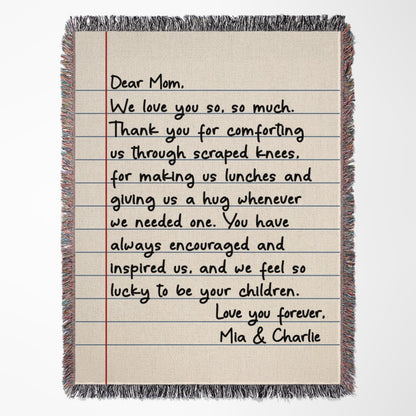 Dear Mom,
We love you so, so much.
Thank you for comforting
us through scraped knees,
for making us lunches and
giving us a hug whenever
we needed one. You have
always encouraged and
inspired us, and we feel so
lucky to be your children.
Love you forever,
Mia & Charlie